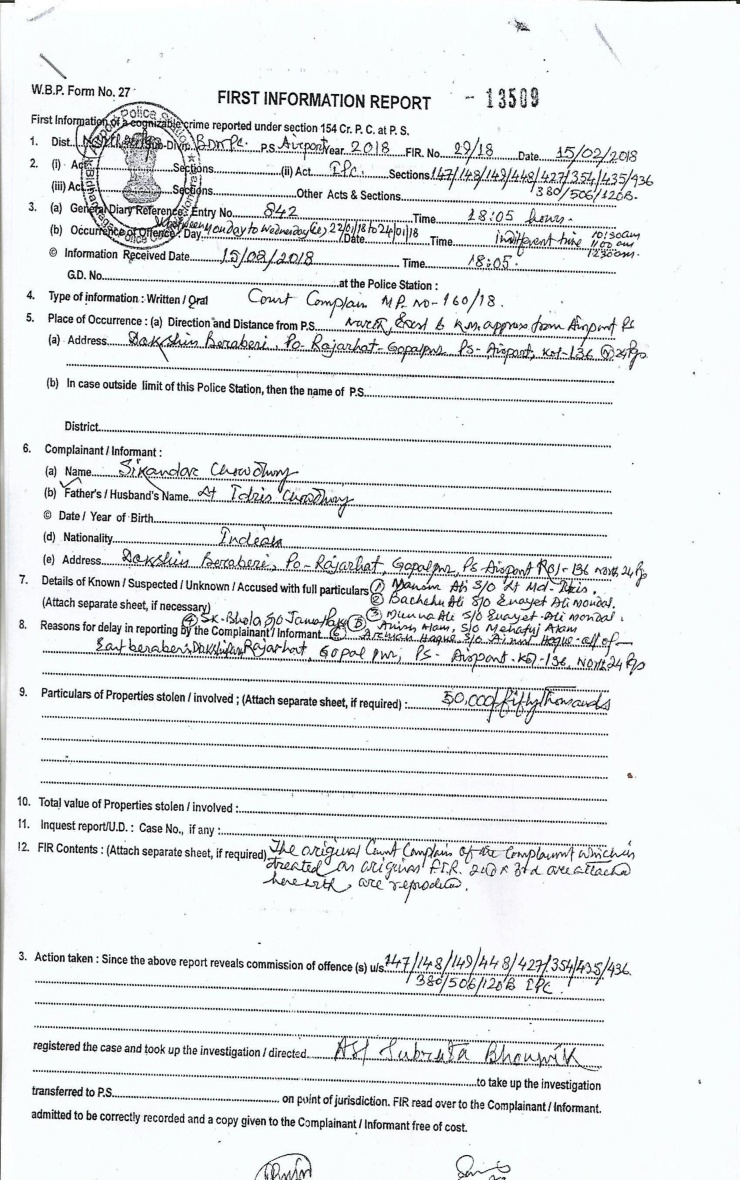 W.B.P. Form No. 27
FIRST INFORMATION REPORT - 13509
First Information of a cognizable crime reported under section 154 Cr. P. C. at P. S.
1. Dist. Sub-Divn. P.S. Airport Year 2018 FIR. No. 29/18 Date 15/02/2018
2. (i) Act Sections (ii) Act IPC. Sections 147/148/149/448/427/354/435/436
(iii) Act Sections Other Acts & Sections 380/506/120B.
3. (a) General Diary Reference: Entry No. 842 Time 18:05 hours.
(b) Occurrence of Offence: Day Between Monday to Wednesday 22/01/18 to 24/01/18 Date Time 10:30am
11:00 am
12:30am.
© Information Received Date 15/02/2018 Time 18:05.
G.D. No. at the Police Station :
4. Type of information : Written / Oral Court Complain MP. No-160/18.
5. Place of Occurrence : (a) Direction and Distance from P.S. North East 6 K.m. approx from Airport PS
(a) Address Dakshin Beraberi, Po- Rajarhat-Gopalpur, PS- Airport, Kol-136 24 Pgs
(b) In case outside limit of this Police Station, then the name of P.S.
District
6. Complainant / Informant :
(a) Name Sikandar Chowdhury
(b) Father's / Husband's Name Lt Idris Chowdhury
© Date / Year of Birth
(d) Nationality Indian
(e) Address Dakshin Beraberi, Po- Rajarhat, Gopalpur, PS Airport Kol- 136 North 24 Pgs
7. Details of Known / Suspected / Unknown / Accused with full particulars ① Ali S/O Lt Md.
② Ali S/O Enayet Ali Mondal.
(Attach separate sheet, if necessary) ③ Munna Ali S/O Enayet Ali Mondal.
④ SK- Bhola S/O ⑤ Alam, S/O Alam
8. Reasons for delay in reporting by the Complainant / Informant ⑥ Haque S/O Haque all of
East beraberi Rajarhat, Gopalpur, PS- Airport. Kol-136, North 24 Pgs
9. Particulars of Properties stolen / involved ; (Attach separate sheet, if required) : 50,000/ fifty thousands
10. Total value of Properties stolen / involved :
11. Inquest report/U.D. : Case No., if any :
12. FIR Contents : (Attach separate sheet, if required) The original Court Complain of the Complainant which is
treated as original F.I.R. and are attached
herewith, are reproduced.
3. Action taken : Since the above report reveals commission of offence (s) u/s. 147/148/149/448/427/354/435/436
380/506/120B IPC.
registered the case and took up the investigation / directed ASI Subrata Bhowmik
to take up the investigation
transferred to P.S. on point of jurisdiction. FIR read over to the Complainant / Informant.
admitted to be correctly recorded and a copy given to the Complainant / Informant free of cost.